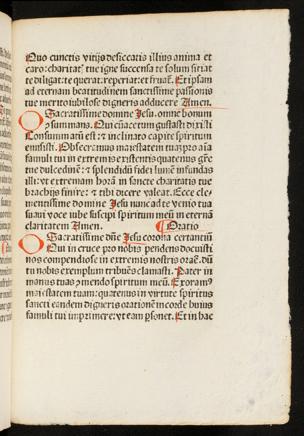 Quo cunctis vitijs desiccatis illius anima et
caro: charitatꝭ tue igne succensa te solum sitiat
te diligat: te querat: reperiat: et fruat᷑. Et ipsam
ad eternam beatitudinem sanctissime passionis
tue merito iubilose digneris adducere Amen.
O Sacratissime domine Jesu. omne bonum
⁊ summans. Qui cū acetum gustasti dixisti
Consummatū est: ⁊ inclinato capite spiritum
emisisti. Obsecramus maiestatem tuā: pro aīa
famuli tui in extremis existentis quatenus
tue dulcedinē: ⁊ splendidi fidei lumē infundas
illi: vt extremam horā in sancte charitatis tue
brachijs finire: ⁊ tibi dicere valeat. Ecce cle
mentissime domine Jesu nunc ad te venio tua
suavi voce iube suscipi spiritum meū in eternā
claritatem Amen. Oratio
O Sacratissime dn̄e Jesu corona certantiū
Qui in cruce pro nobis pendens docuisti
nos compendiose in extremis nostris orare. dū
tu nobis exemplum tribuēs clamasti. Pater in
manus tuas ꝯmendo spiritum meū. Exoram⁹
maiestatem tuam: quatenus in virtute spiritus
sancti eandem digneris orationē in corde huius
famuli tui imprimere: vt eam ꝑsonet. Et in hac